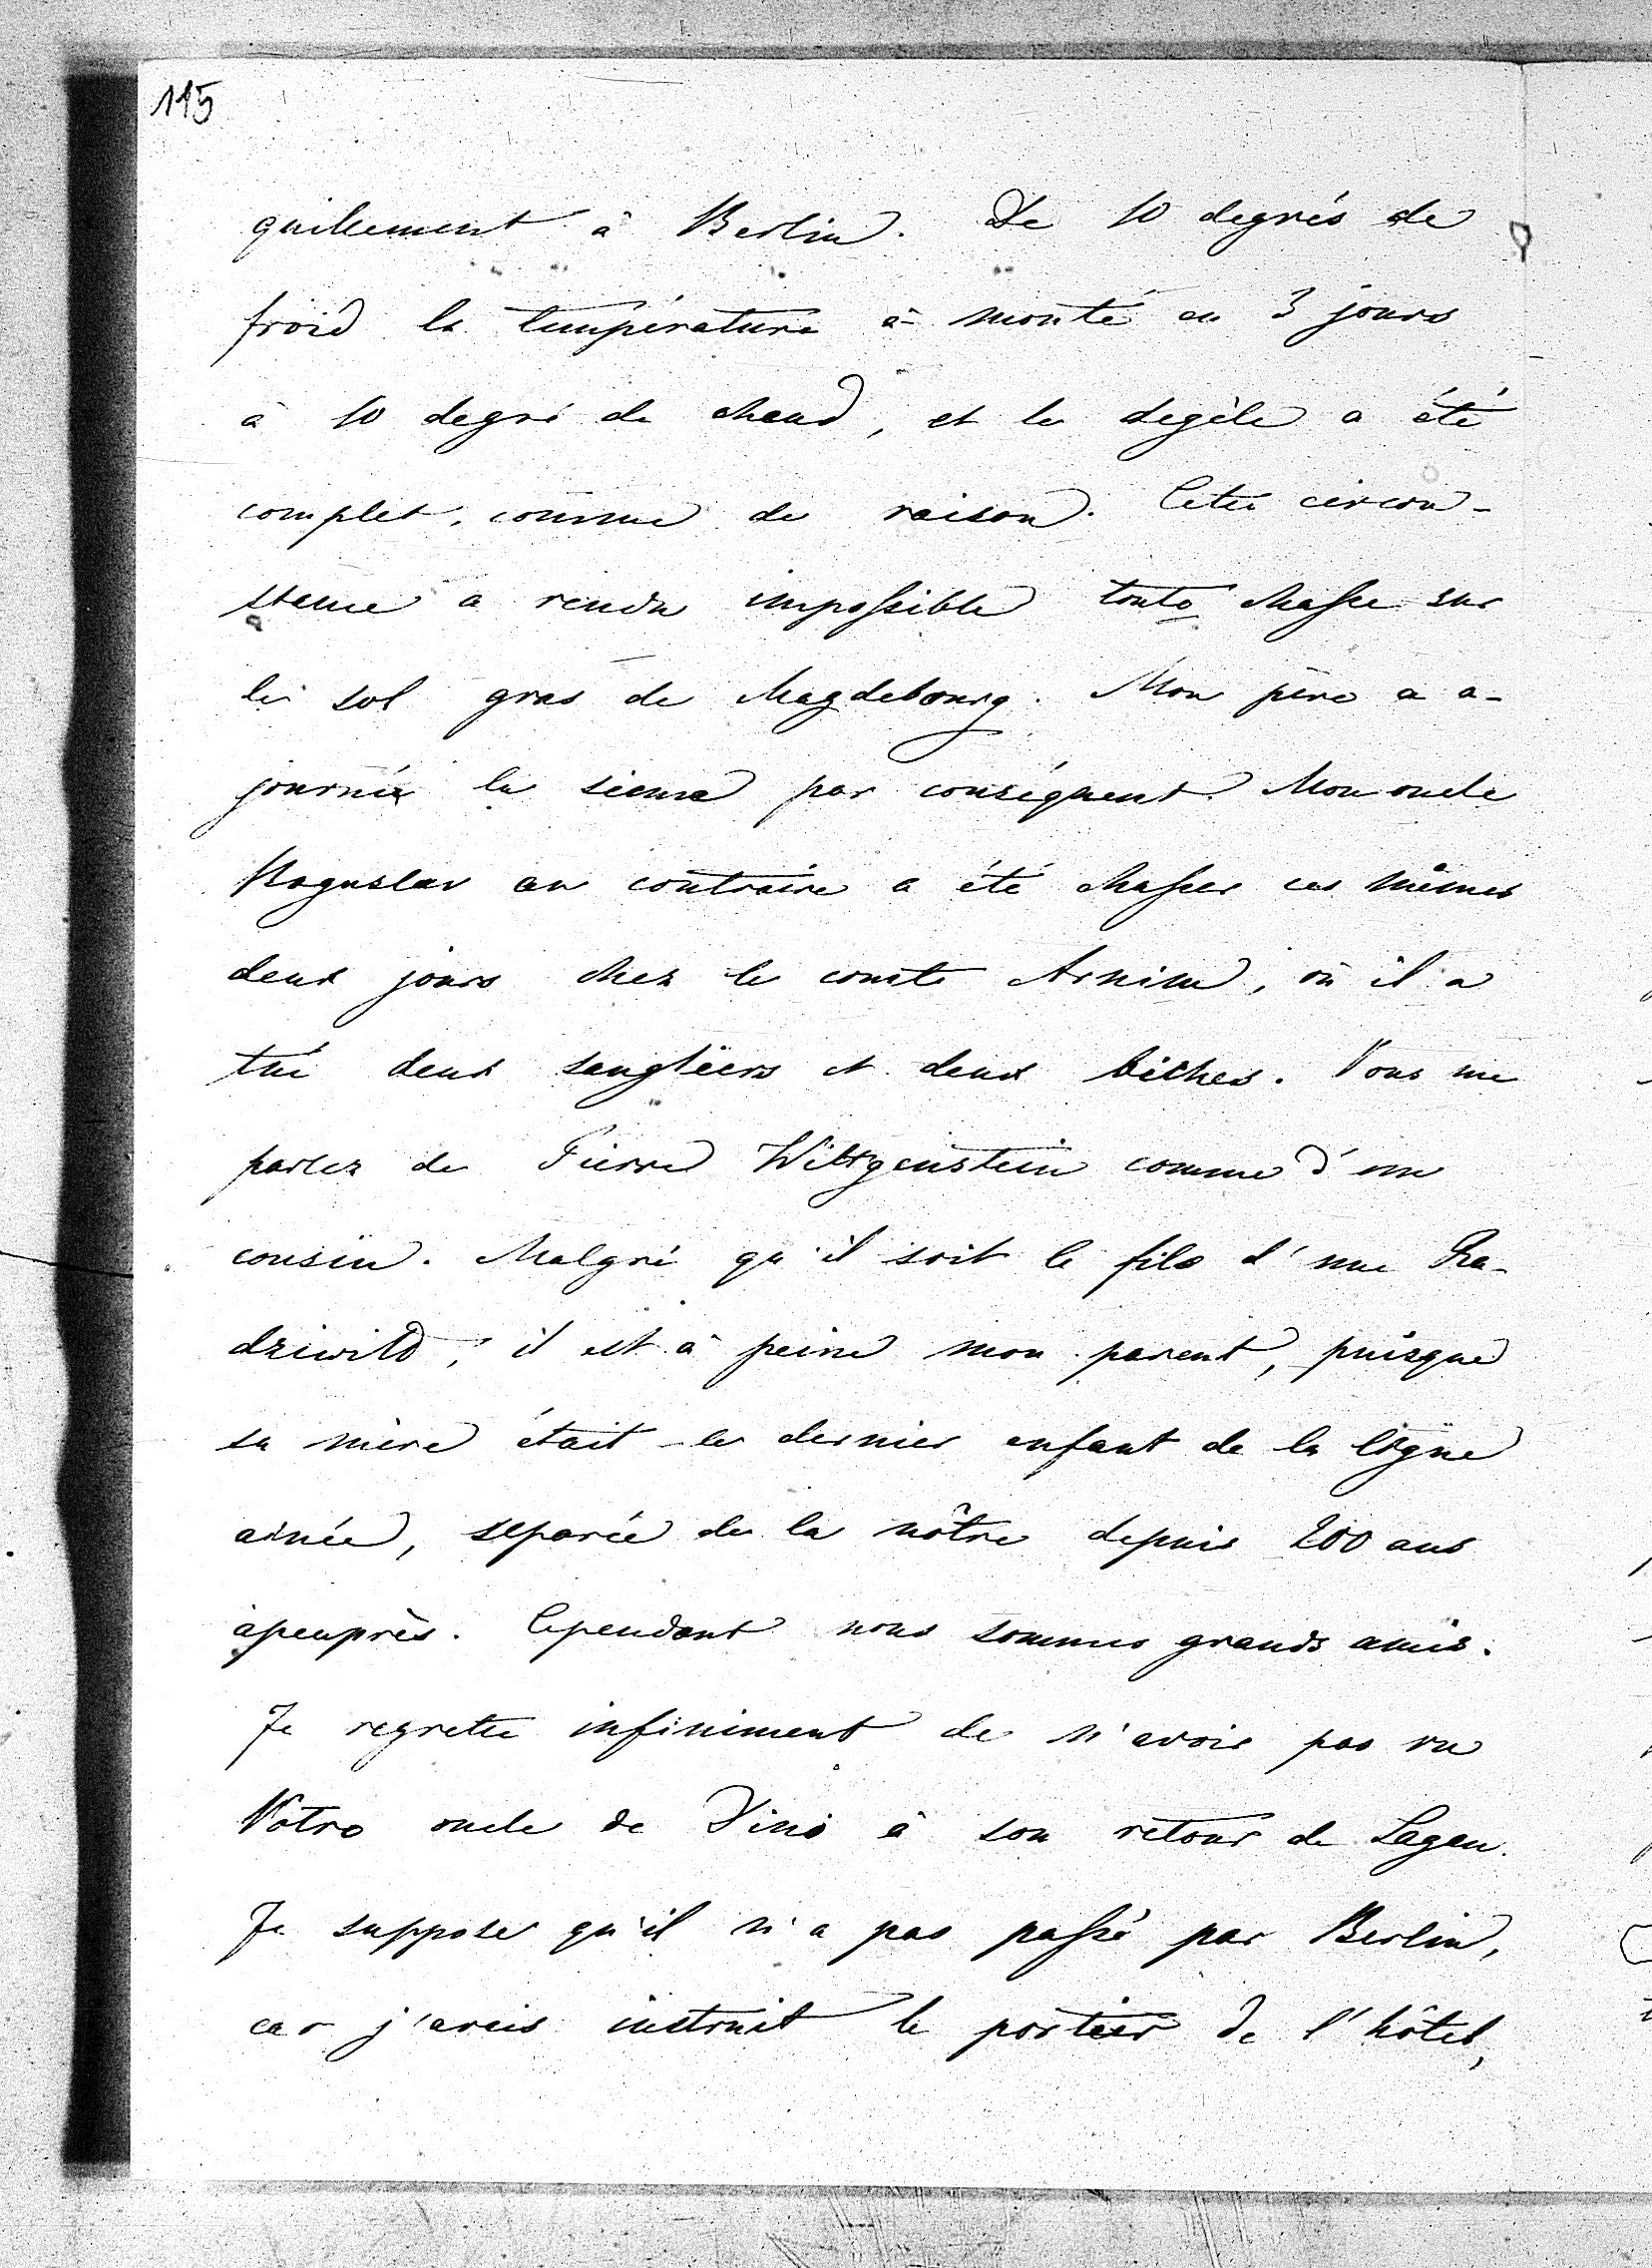 115
quillement à Berlin. De 10 degrés de
froid la température a monté en 3 jours
à 10 degré de chaud, et le degèle a été
complet, comme de raison. Cette circon-
stance a rendu impossible toute chasse sur
le sol gras de Magdebourg. Mon père a a-
journée la sienne par conséquent. Mon oncle
Boguslav au contraire a été chasser ces mêmes
deux jours chez le comte Arnim, où il a
tué deux sangliers et deux biches. Vous me
parlez de Pierre Wittgenstein comme d'un
cousin. Malgré qu'il soit le fils d'une Ra-
dziwill, il est à peine mon parent, puisque
sa mère était le dernier enfant de la ligne
ainée, separée de la nôtre depuis 200 ans
àpeuprès. Cependant nous sommes grands amis.
Je regrette infiniment de n'avoir pas vu
Votre oncle de Dino à son retour de Sagan.
Je suppose qu'il n'a pas passé par Berlin,
car j'avais instruit le portier de l'hôtel,